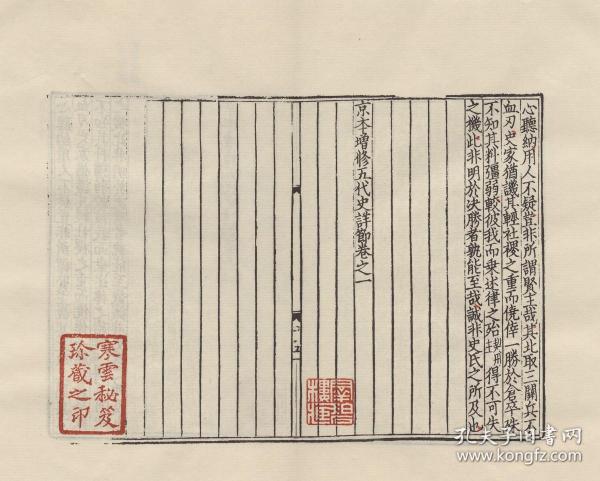 心聽納用人不疑豈非所謂賢主哉其北取三關兵不
血刃史家猶譏其輕社稷之重而僥倖一勝於倉卒殊
不知其料彊弱較彼我而乘述律之殆契丹主得不可失
之機此非明於決勝者孰能至哉誠非史氏之所及也
京本增修五代史詳節卷之一
寒雲秘笈
珍藏之印
孔夫子旧书网
www.kongfz.com